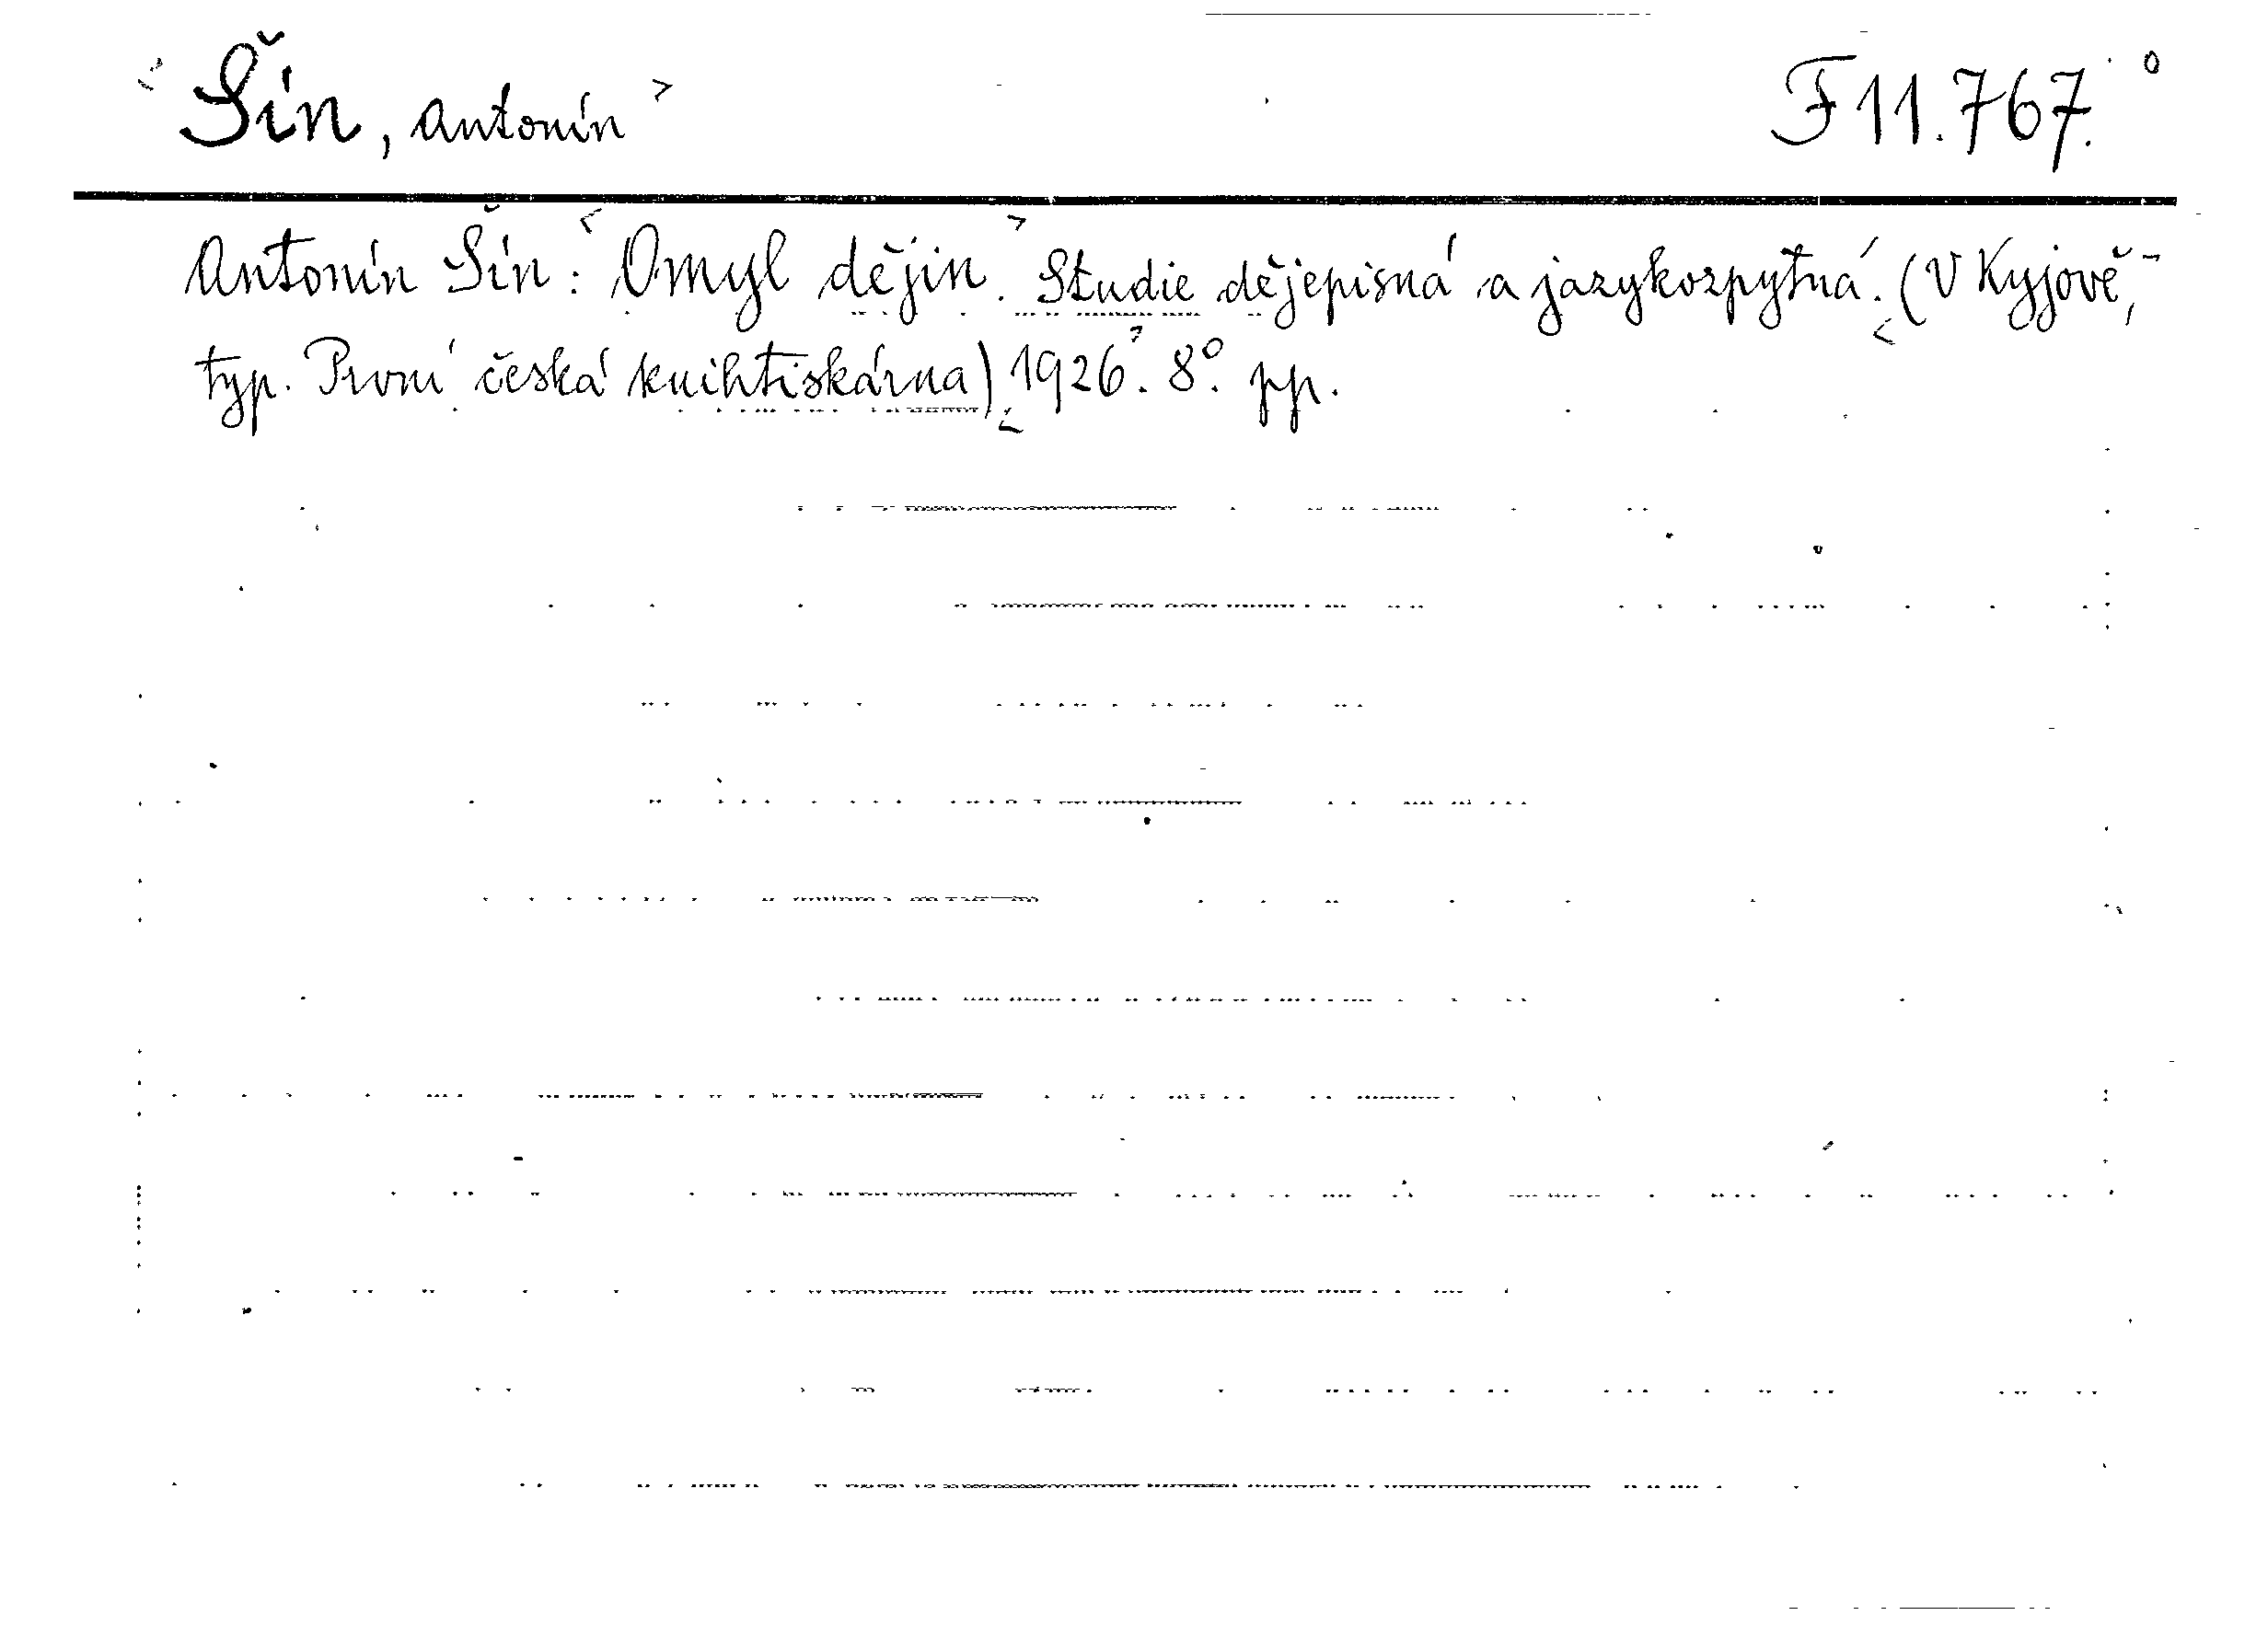 Šín, Antonín F 11.767.
Antonín Šín: Omyl dějin. Studie dějepisná a jazykozpytná. (V Kyjově,
typ. První česká knihtiskárna) 1926. 8°. pp.